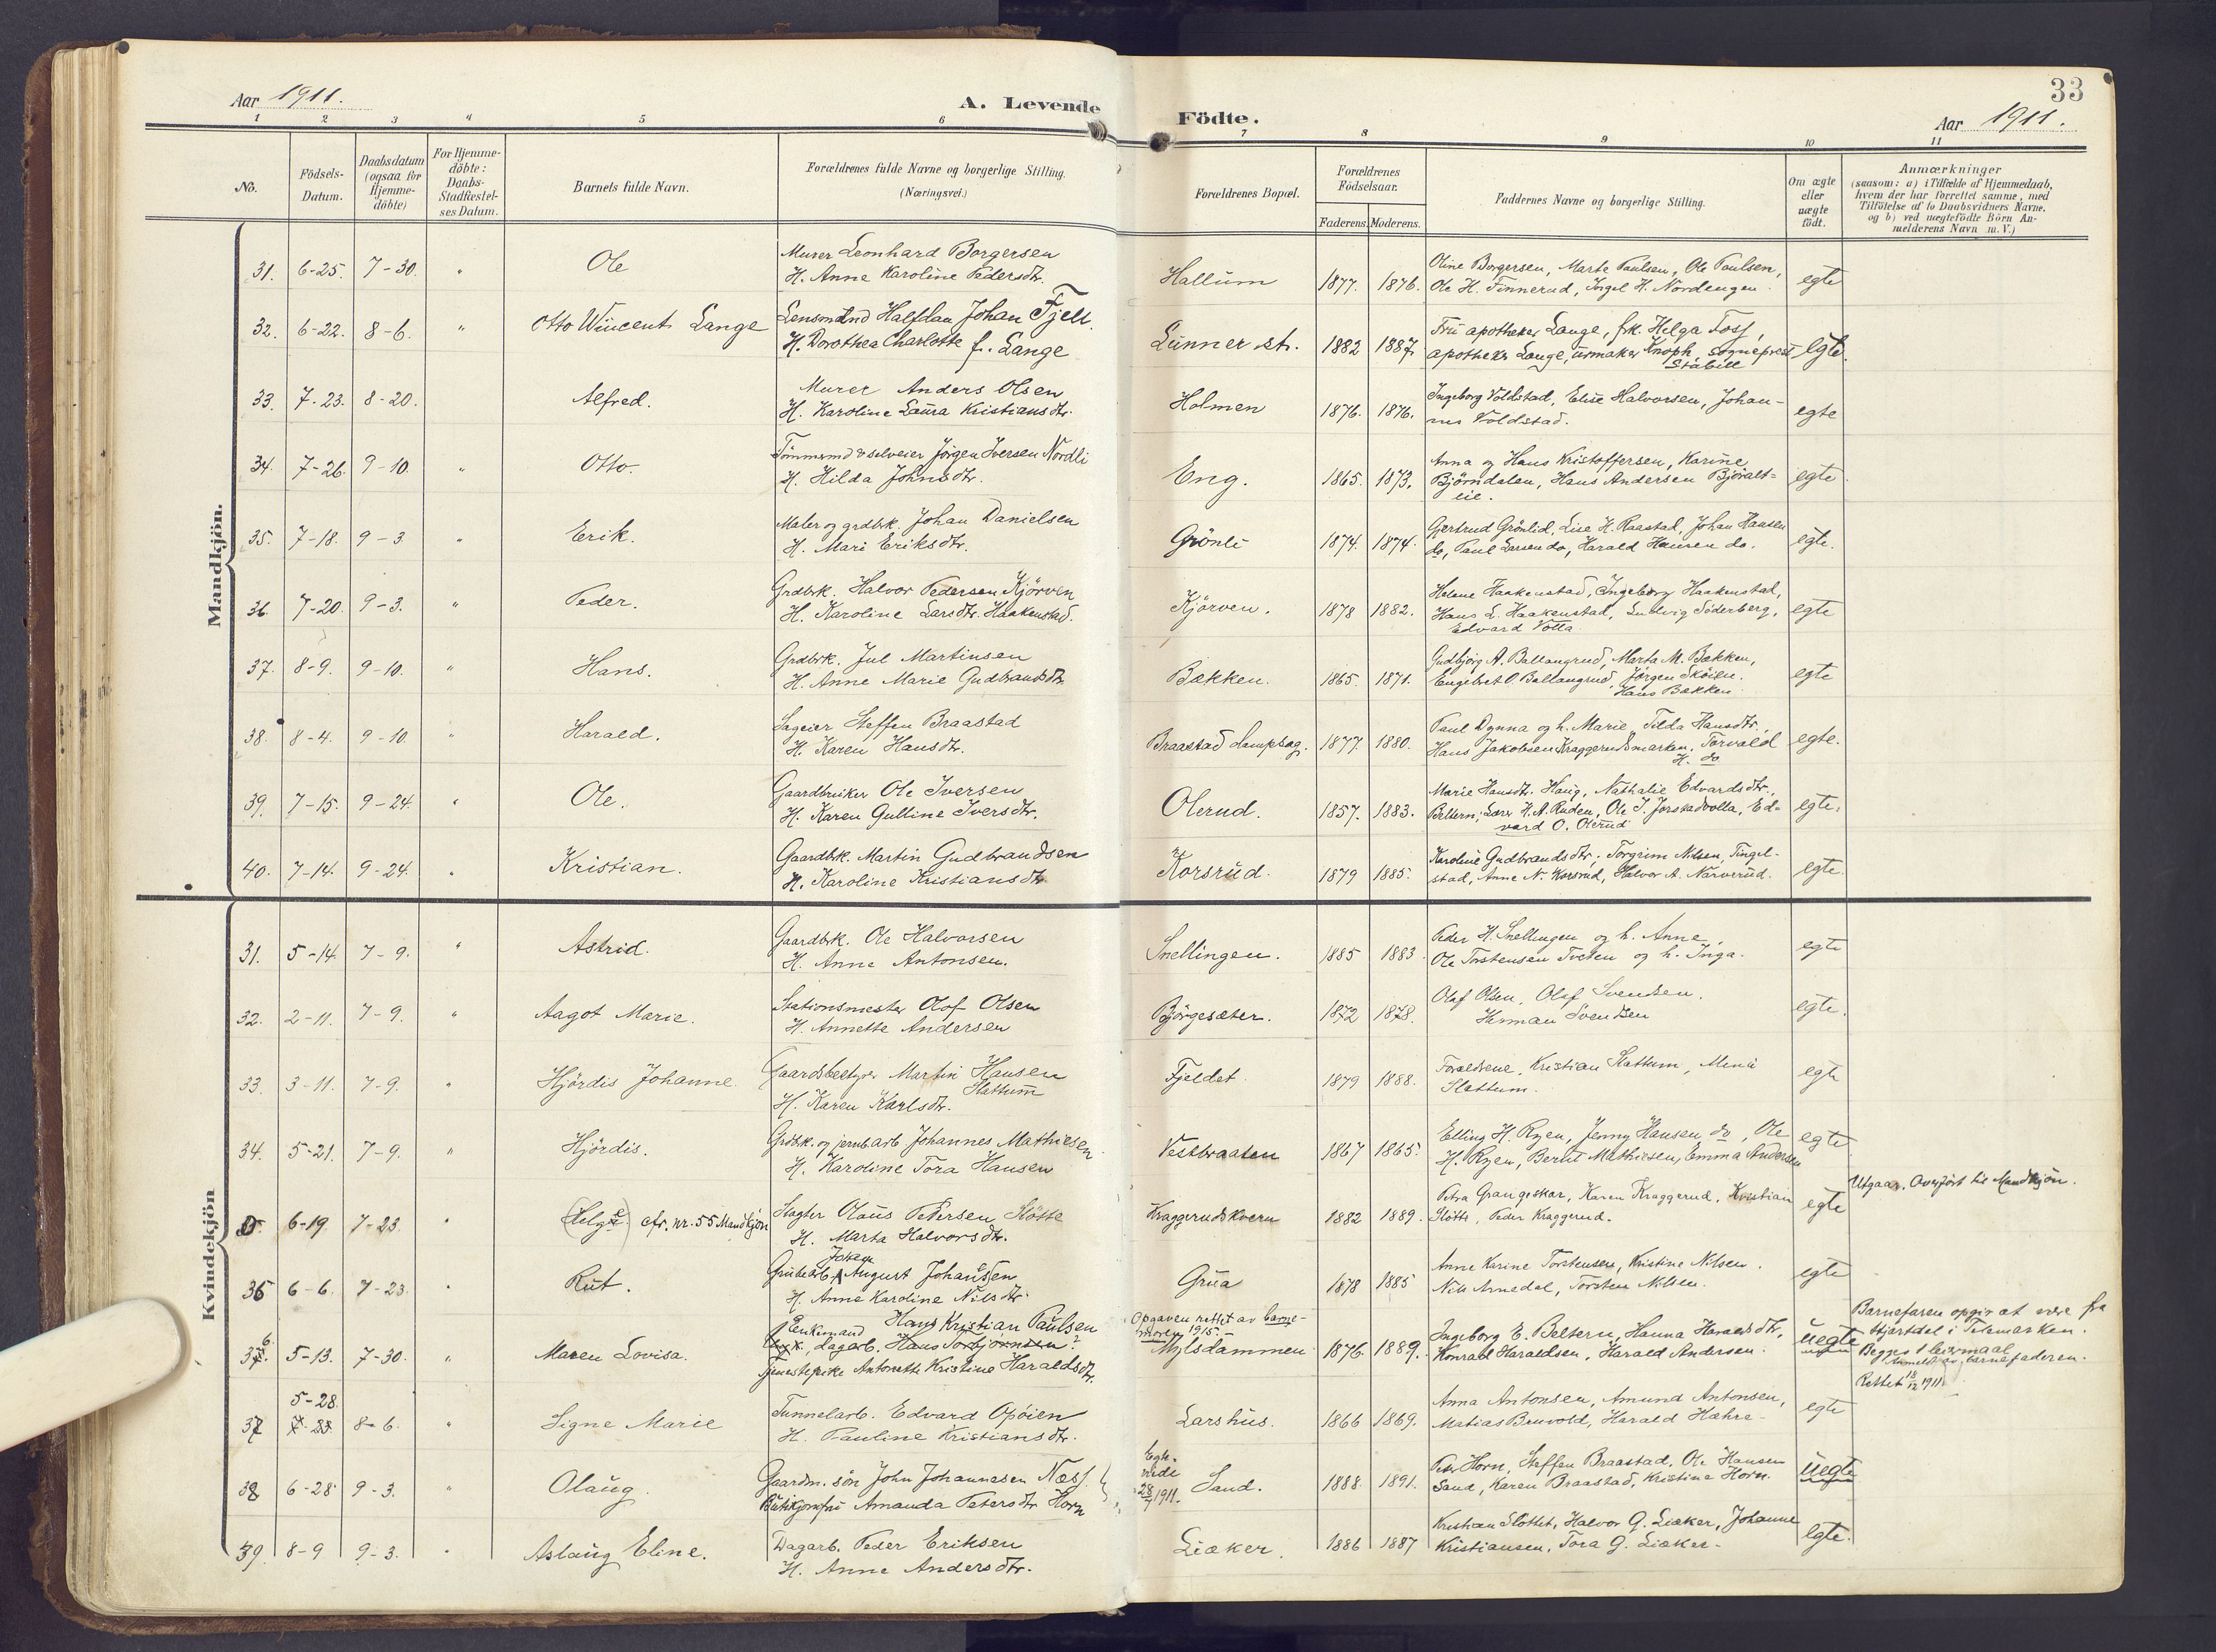 Aar 1911.
A. Levende Födte.
33
Aar 1911.
1 2 3 4 5 6 7 8 9 10 11
No.
Födsels-Datum.
Daabsdatum (ogsaa for Hjemme-döbte)
For Hjemme-döbte: Daabs-Stadfæstel-ses Datum.
Barnets fulde Navn.
Forældrenes fulde Navne og borgerlige Stilling. (Næringsvei.)
Forældrenes Bopæl.
Forældrenes Födselsaar.
Faderens. Moderens.
Faddernes Navne og borgerlige Stilling.
Om ægte eller uægte födt.
Anmærkninger
(saasom: a) i Tilfælde af Hjemmedaab,
hvem der har forrettet samme, med
Tilföielse af to Daabsvidners Navne.
og b) ved uægtefödte Börn An-
melderens Navn m. V.)
Mandkjön.
31. 6-25. 7-30. " Ole
Murer Leonhard Borgersen
H. Anne Karoline Pedersdtr.
Hallum 1877. 1876.
Oline Borgersen, Marte Paulsen, Ole Paulsen,
Ole H. Finnerud, Ingel H. Nordengen.
egte
32. 6-22. 8-6. " Otto Wincents Lange
Lensmand Halfdan Johan Fjell.
H. Dorothea Charlotte f. Lange
Lunner st. 1882 1887.
Fru apotheker Lange, frk. Helga Foss,
apotheker Lange, urmaker Knoph, sogneprest
Stabell
egte.
33. 7-23. 8-20. Alfred.
Murer Anders Olsen
H. Karoline Laura Kristiansdtr.
Holmen 1876. 1876.
Ingeborg Voldstad, Elise Halvorsen, Johan-
nes Voldstad.
egte
34. 7-26. 9-10. " Otto.
Tömmermd & selveier Jörgen Iversen Nordli
H. Hilda Johnsdtr.
Eng. 1865. 1873.
Anna og Hans Kristoffersen, Karine
Björndalen, Hans Andersen Björalt-
eie.
egte.
35. 7-18. 9-3. " Erik.
Maler og grdbrk. Johan Danielsen
H. Mari Eriksdtr.
Grönli 1874. 1874.
Gjertrud Grönlid, Lise H. Raastad, Johan Hansen
do, Paul Larsen do, Harald Hansen do.
egte.
36. 7-20. 9-3. " Peder.
Grdbrk. Halvor Pedersen Kjörven
H. Karoline Larsdtr. Haakenstad.
Kjörven. 1878 1882.
Helene Haakenstad, Ingeborg Haakenstad,
Hans L. Haakenstad, Ludvig Söderberg,
Edvard Volla.
egte
37. 8-9. 9-10. " Hans.
Grdbrk. Jul Martinsen
H. Anne Marie Gudbrandsdtr.
Bakken. 1865. 1871.
Gudbjörg A. Ballangrud, Marta M. Bakken,
Engebret O. Ballangrud, Jörgen Sköien.
Hans Bakken
egte
38. 8-4. 9-10. " Harald.
Sageier Steffen Braastad
H. Karen Hansdtr.
Braastad dampsag. 1877. 1880.
Paul Dynna og h. Marie, Tilda Hansdtr.,
Hans Jakobsen Kraggerudsmarken, Torvald
H. do
egte.
39. 7-15. 9-24. " Ole.
Gaardbruker Ole Iversen
H. Karen Gulline Iversdtr.
Olerud. 1857. 1883.
Marie Hansdtr. Haug, Nathalie Edvardsdtr.,
Beltern; Lærer H. A. Ruden, Ole I. Jorstadvolla, Ed-
vard O. Olerud
egte.
40. 7-14. 9-24. " Kristian.
Gaardbk. Martin Gudbrandsen
H. Karoline Kristiansdtr.
Korsrud. 1879 1885.
Karoline Gudbrandsdtr; Torgrim Nilsen, Tingel-
stad, Anne N. Korsrud, Halvor A. Narverud.
egte.
Kvindekjön
31. 5-14. 7-9. " Astrid.
Gaardbrk. Ole Halvorsen
H. Anne Antonsen.
Snellingen. 1885 1883.
Peder H. Snellingen og h. Anne,
Ole Torstensen Tveten og h. Inga.
egte
32. 2-11. 7-9. " Aagot Marie.
Stationsmester Olof Olsen
H. Annette Andersen
Björgesæter. 1872 1878.
Olaf Olsen, Olaf Svendsen.
Herman Svendsen
egte.
33. 3-11. 7-9. " Hjördis Johanne.
Gaardsbestyrer Martin Hansen
Slattum
H. Karen Karlsdtr.
Fjeldet 1879 1888.
Forældrene, Kristian Slattum, Mina
Slattum.
egte
34. 5-21. 7-9. " Hjördis.
Grdbk. og jernb.arb Johannes Mathiesen
H. Karoline Tora Hansen
Vestbraaten 1867 1865.
Elling H. Ryen, Jenny Hansen do, Ole
H. Ryen, Bernt Mathiesen, Emma Andersen
egte
6-19. 7-23. " (Helge) cfr. nr. 55 Mandkjön
Slagter Olaus Pedersen Slötte
H. Marta Halvorsdtr.
Kraggerudskvern 1882 1889.
Petra Grangeskar, Karen Kraggerud, Kristian
Slötte, Peder Kraggerud.
egte
Utgaar. Overfört til Mandkjön.
35 6-6. 7-23. " Rut.
Johan
Grubearb. August Johansen
H. Anne Karoline Nilsdtr.
Grua 1878 1885
Anne Karine Torstensen, Kristine Nilsen.
Nils Arnedal, Torsten Nilsen.
egte
36. 5-13. 7-30. " Maren Lovisa.
Enkemand Hans Kristian Paulsen
dagarb. Hans Torbjörnsen?
Tjenestepike Antonette Kristine Haraldsdtr.
Opgaven rettet av barne-
moren 1915.
Mylsdammen 1876. 1889.
Ingeborg E. Beltern, Hanna Haraldsdtr,
Konrad Haraldsen, Harald Andersen.
uegte
Barnefaren opgir at være fra
Hjartdal i Telemarken.
Begges 1 leiermaal
Anmeldt av barnefaderen.
Rettet 18/12 1911.
37 5-28. 8-6. " Signe Marie
Tunnelarb. Edvard Opöien
H. Pauline Kristiansdtr.
Larshus. 1866 1869.
Anna Antonsen, Amund Antonsen,
Matias Bruvold, Harald Hæhre.
egte
38 6-28 9-3. " Olaug.
Gaardm. sön John Johannesen Næss
Butikjomfru Amanda Petersdtr Horn
Egte-
viede
28/7 1911.
Sand. 1888 1891.
Peter Horn, Steffen Braastad, Ole Hansen
Sand, Karen Braastad, Kristine Horn.
uegte
39. 8-9 9-3. " Aslaug Eline.
Dagarb. Peder Eriksen
H. Anne Andersdtr.
Liaker. 1886 1887
Kristian Slottet, Halvor G. Liaker, Johanne
Kristiansen, Tora G. Liaker.
egte.